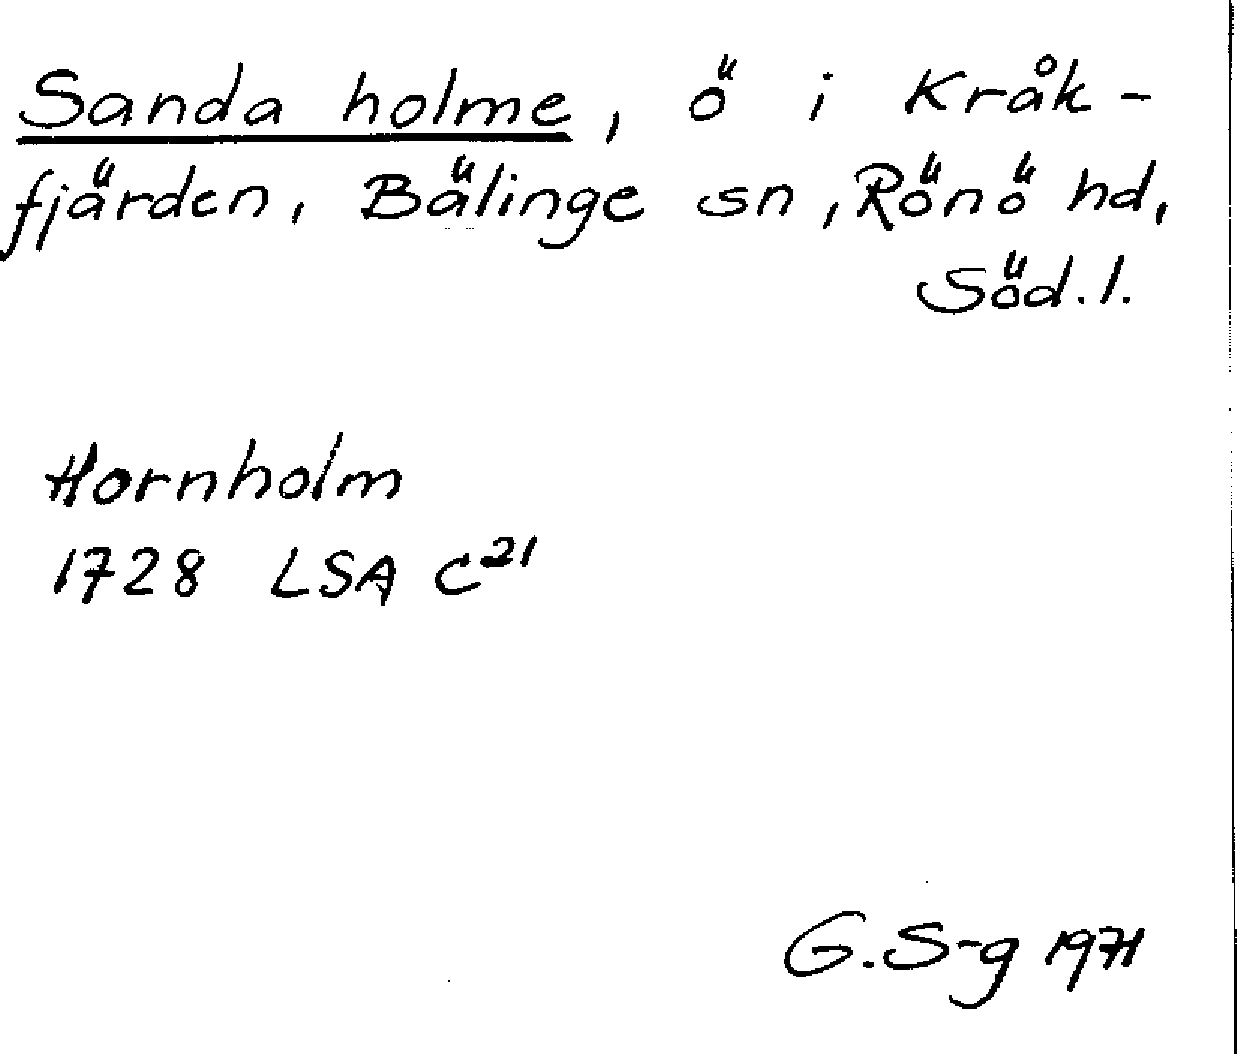 Sanda holme, ö i Kråk-
fjärden, Bälinge sn, Rönö hd,
Söd. l.
Hornholm
1728 LSA C²¹
G. S-g 1971